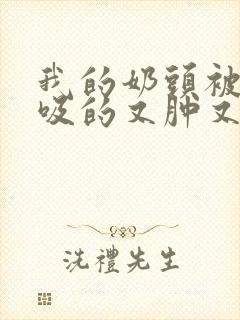 我的奶頭被
吸的又肿又
洗禮先生